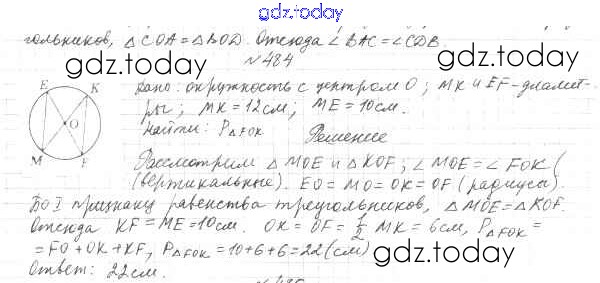 gdz.today
гольников, △COA = △BOD. Отсюда ∠BAC = ∠CDB.
№484
gdz.today gdz.today
Дано: окружность с центром O; MK и EF - диамет-
ры; MK = 12 см; ME = 10 см.
Найти: P△FOK
Решение
E K
O
M F
Рассмотрим △MOE и △KOF; ∠MOE = ∠FOK (
(вертикальные). EO = MO = OK = OF (радиусы).
По I признаку равенства треугольников, △MOE = △KOF.
Отсюда KF = ME = 10 см. OK = OF = 1/2 MK = 6 см, P△FOK =
= FO + OK + KF, P△FOK = 10 + 6 + 6 = 22 (см)
Ответ: 22 см.
gdz.today gdz.today